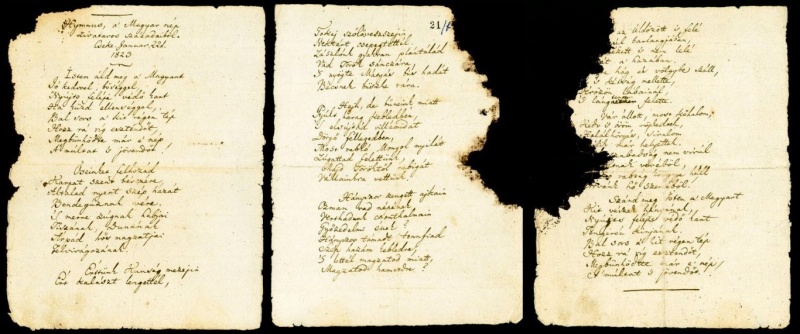 Hymnus, a' Magyar nép
zivataros századaiból.
Cseke, Januar. 22d.
1823
Isten áld meg a' Magyart
Jó kedvvel, bőséggel,
Nyújts feléje védő kart
Ha küzd ellenséggel;
Bal sors a' kit régen tép
Hozz rá víg esztendőt,
Megbűnhödte már e' nép
A' múltat 's jövendőt!
Őseinket felhozád
Kárpát szent bérczére,
Általad nyert szép hazát
Bendegúznak vére.
'S merre zúgnak habjai
Tiszának, Dunának,
Árpád hős magzatjai
Felvirágozának.
Értünk Kunság mezején
Ért kalászt lengettél,
21/
Tokaj szőlővesszein
Nektárt csepegtettél.
Zászlónk gyakran plántálád
Vad Török sánczára,
'S nyögte Mátyás bús hadát
Bécsnek büszke vára.
Hajh, de bűneink miatt
Gyúlt harag kebledben,
'S elsújtád villámidat
Dörgő fellegedben,
Most rabló Mongol nyilát
Zúgattad felettünk,
Majd Töröktől rabigát
Vállainkra vettünk.
Hányszor zengett ajkain
Ozman vad népének
Vert hadunk csonthalmain
Győzedelmi ének!
Hányszor támadt tenfiad
Szép hazám kebledre,
'S lettél magzatod miatt,
Magzatod hamvedre?
az üldözött 's felé
barlangjában,
's nem lelé
a' hazában.
hág és völgybe száll,
's kétség mellette,
Vérözön lábainál,
'S lángtenger felette.
Vár állott, most kőhalom,
Kedv 's öröm röpkedtek,
Halálhörgés, siralom
már helyettek.
szabadság nem virúl
véréből,
rabság könnye hull
hő szeméből.
Szánd meg Isten a' Magyart
Kit vészek hányának,
Nyújts feléje védő kart
Tengerén kínjának.
Bal sors a' kit régen tép
Hozz rá víg esztendőt,
Megbűnhödte már e' nép,
A' múltat 's jövendőt.